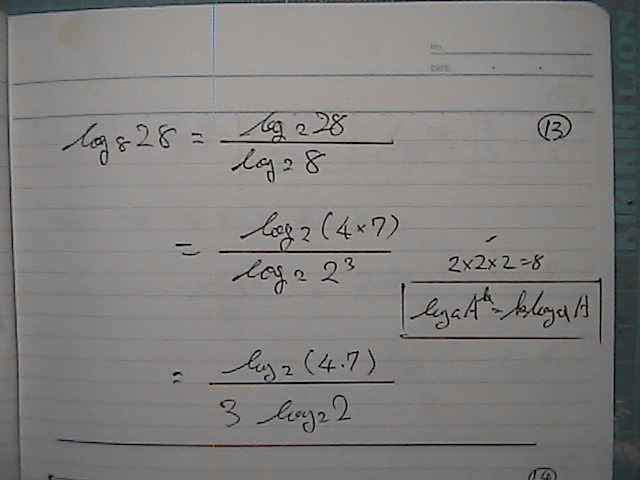 No.
DATE
log₈28 = log₂28 / log₂8
⑬
= log₂(4×7) / log₂2³
2×2×2=8
logₐAᵏ=klogₐA
= log₂(4.7) / 3 log₂2
⑭